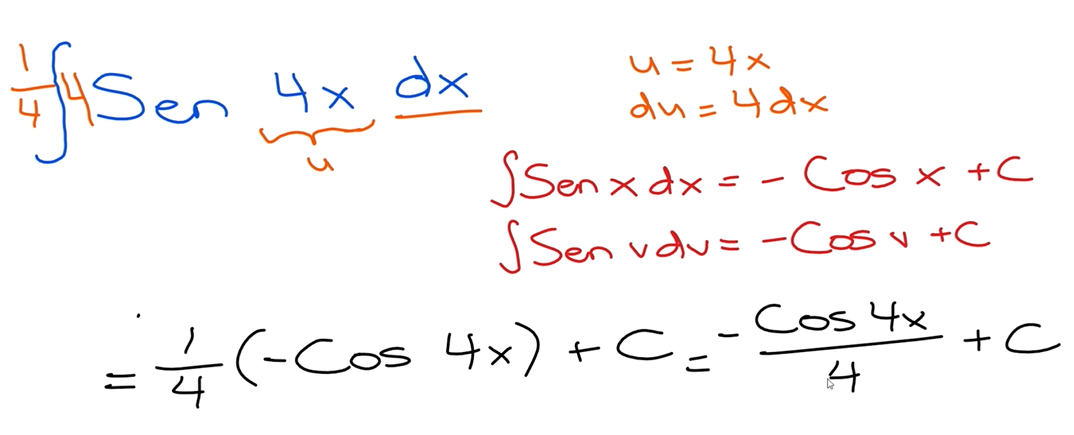 1/4 ∫ 4 Sen 4x dx
u
u = 4x
du = 4dx
∫ Sen x dx = - Cos x + C
∫ Sen v dv = - Cos v + C
= 1/4 (-Cos 4x) + C = - Cos 4x / 4 + C